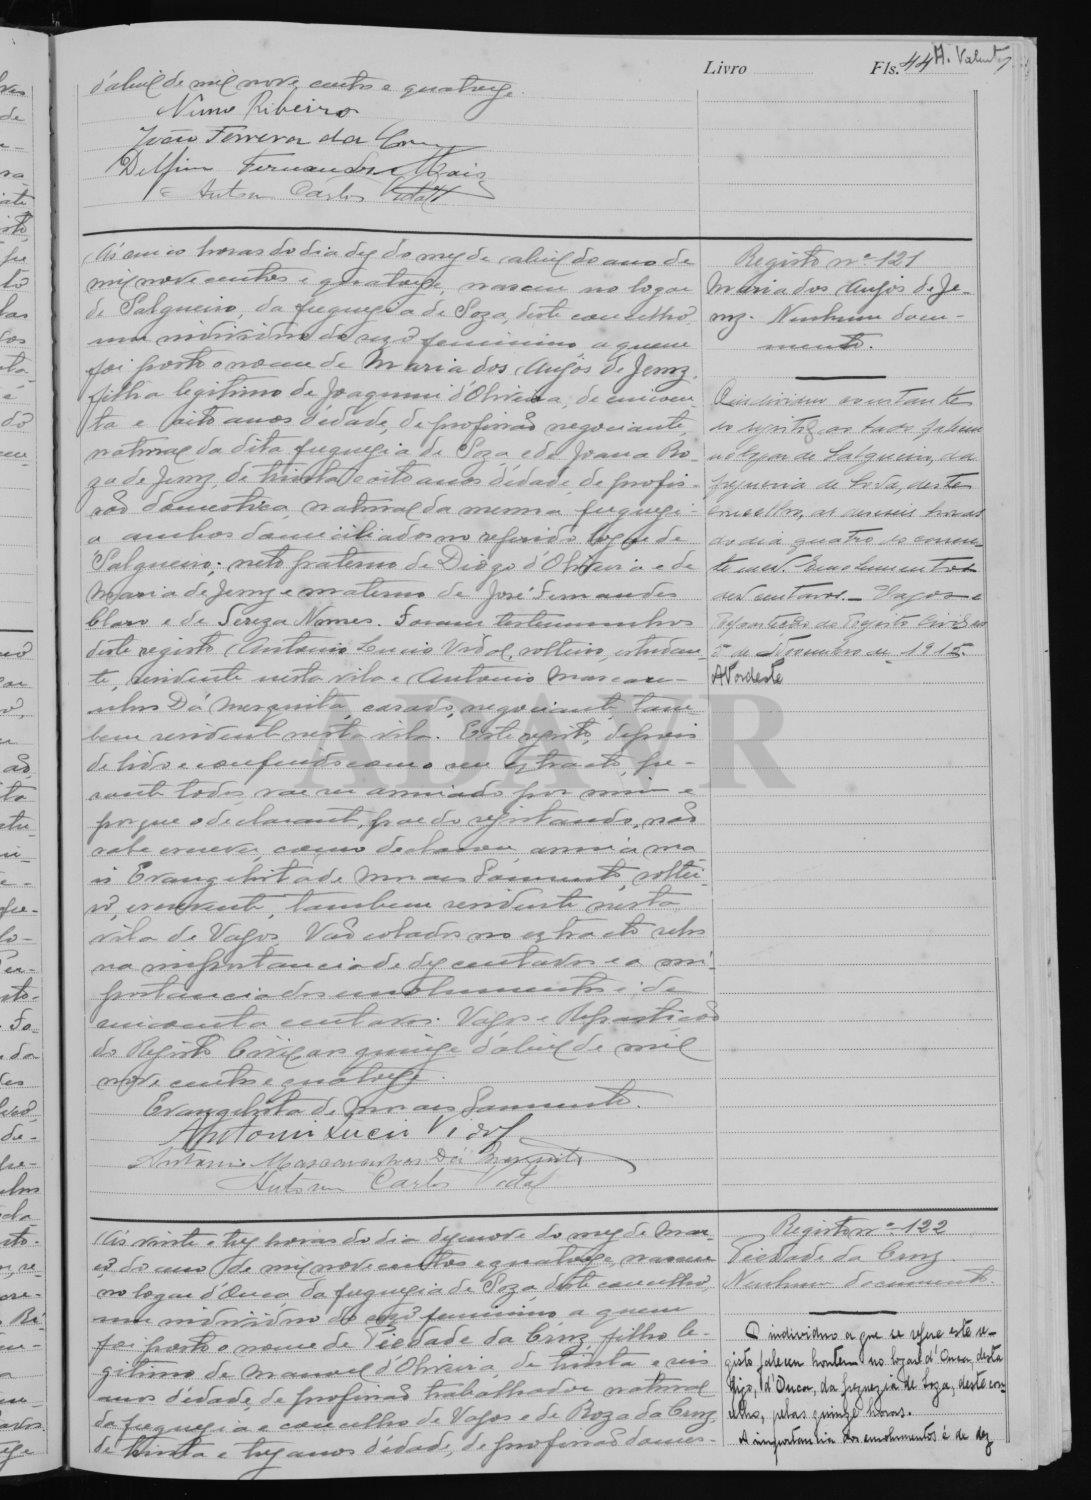 Livro Fls. 44 A. Valente
d'abril de mil nove centos e quatorze.
Nuno Ribeiro
João Ferreira da Cruz
Delfim Fernandes Mais
Antonio Carlos Vidal
Ás cinco horas do dia dez do mez de abril do ano de
mil nove centos e quatorze, nasceu no logar
de Salgueiro, da freguezia de Soza, deste concelho,
um individuo do sexo feminino a quem
foi posto o nome de Maria dos Anjos de Jemz,
filha legitimo de Joaquim d'Oliveira, de cincoen-
ta e oito anos d'edade, de profissão negociante,
natural da dita freguezia de Soza e de Joana Ro-
za de Jemz, de trinta e oito anos d'edade, de profis-
são domestica, natural da mesma freguezi-
a ambos domiciliados no referido logar de
Salgueiro; neto paterno de Diogo d'Oliveira e de
Maria de Jemz e materno de José Fernandes
Claro e de Tereza Nunes. Foram testemunhas
deste registo Antonio Lucio Vidal, solteiro, estudan-
te, residente nesta vila e Antonio Mascare-
nhas Dá Mesquita, casado, negociante, tam-
bem residente nesta vila. Este registo, depois
de lido e conferido com o seu extracto, pe-
rante todos, vae ser assinado por mim e
porque o declarante, pae do registando, não
sabe escrever, como declarou, assina
Evangelista de Moraes Sarmento, soltei-
ro, escrevente, tambem residente nesta
vila de Vagos. Vão colados no extracto selos
na importancia de dez centavos e a im-
portancia dos emolumentos é de
cincoenta centavos. Vagos e Repartição
do Registo Civil aos quinze d'abril de mil
nove centos e quatorze
Evangelista de Moraes Sarmento.
Antonio Lucio Vidal
Antonio Mascarenhas Dá Mesquita
Antonio Carlos Vidal
Registo nº 121
Maria dos Anjos de Je-
mz. Nenhum docu-
mento.
O individuo constante
do registo ao lado faleceu
no logar de Salgueiro, da
freguezia de Soza, deste
concelho, as dezeseis horas
do dia quatro do corren-
te mez. Emolumentos
dez centavos. — Vagos e
Repartição do Registo Civil
5 de Dezembro de 1915.
ADAVR
Ás vinte e trez horas do dia dezenove do mez de Mar-
ço do ano de mil nove centos e quatorze, nasceu
no logar d'Ouca da freguezia de Soza, deste concelho,
um individuo do sexo feminino a quem
foi posto o nome de Piedade da Cruz, filho le-
gitimo de Manuel d'Oliveira, de trinta e seis
anos d'edade, de profissão trabalhador, natural
da freguezia e concelho de Vagos e de Roza da Cruz,
de trinta e trez anos d'edade, de profissão domes-
Registo nº 122
Piedade da Cruz.
Nenhum documento.
O individuo a que se refere este re-
gisto faleceu hontem no logar d'Ouca, desta
digo, d'Ouca, da freguezia de Soza, deste con-
celho, pelas quinze horas.
A importancia dos emolumentos é de dez